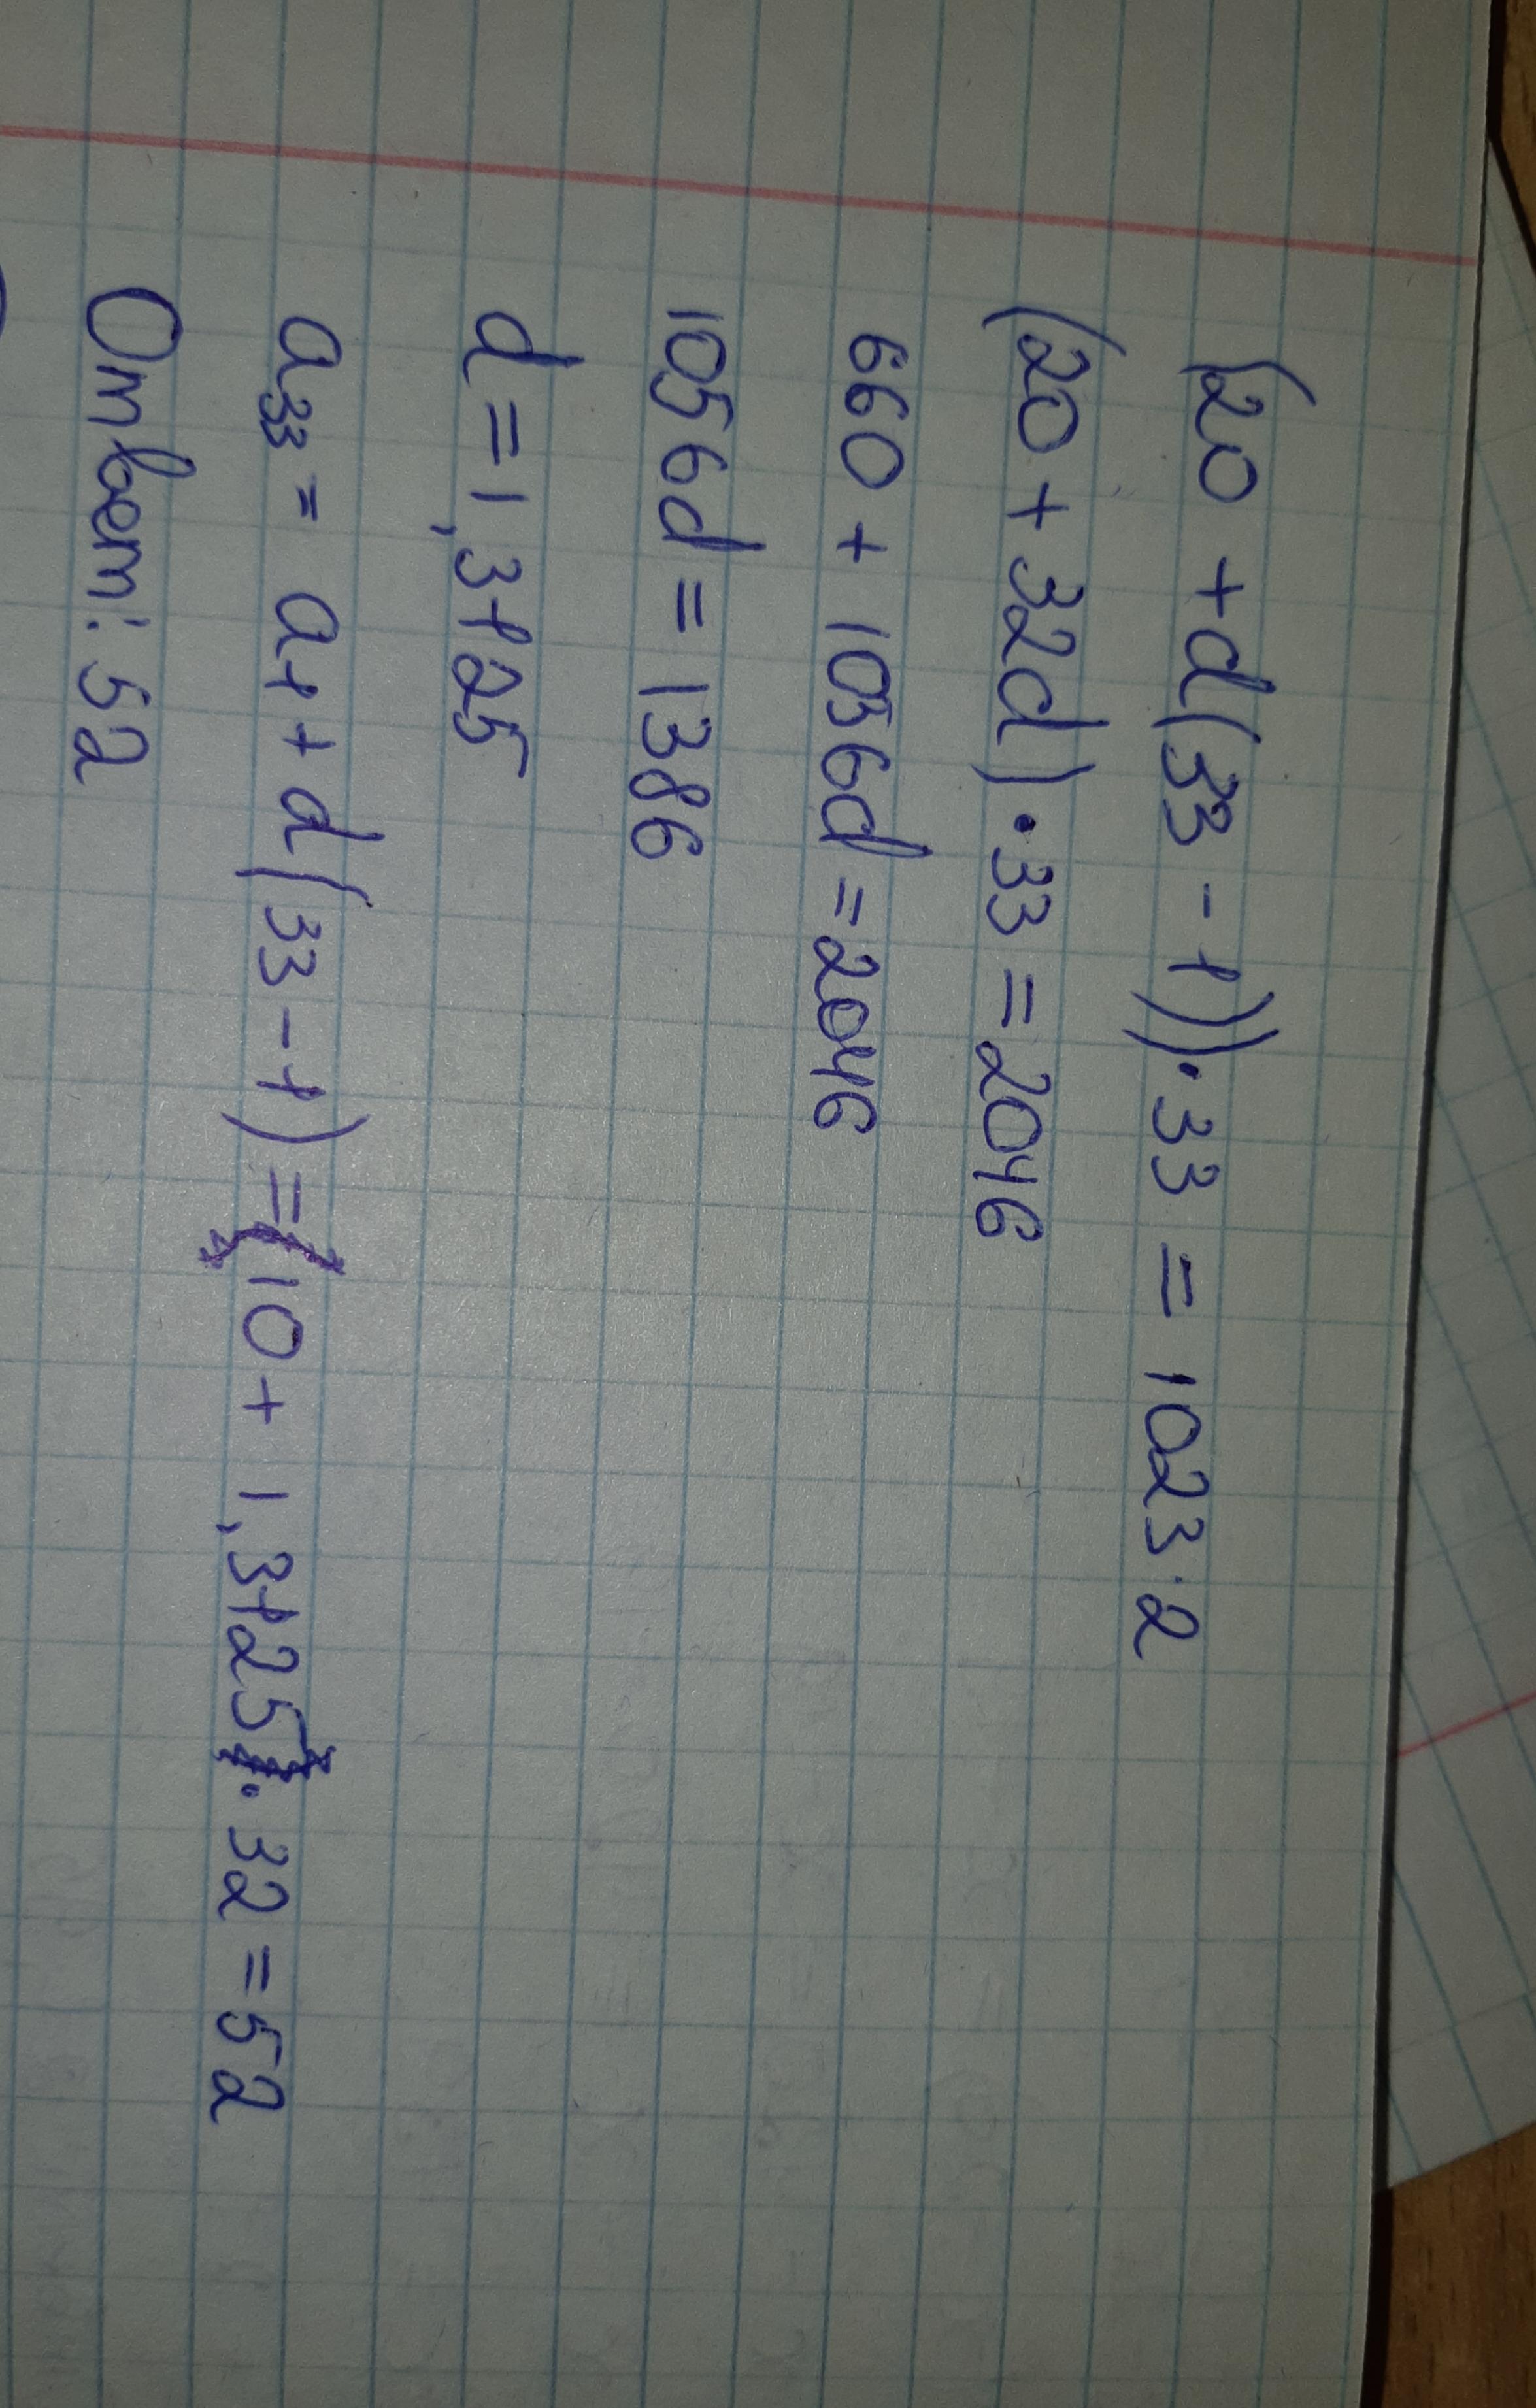 (20 + d(33 - 1)) · 33 = 1023 · 2
(20 + 32d) · 33 = 2046
660 + 1056d = 2046
1056d = 1386
d = 1,3125
a33 = a1 + d(33 - 1) = 10 + 1,3125 · 32 = 52
Ответ: 52